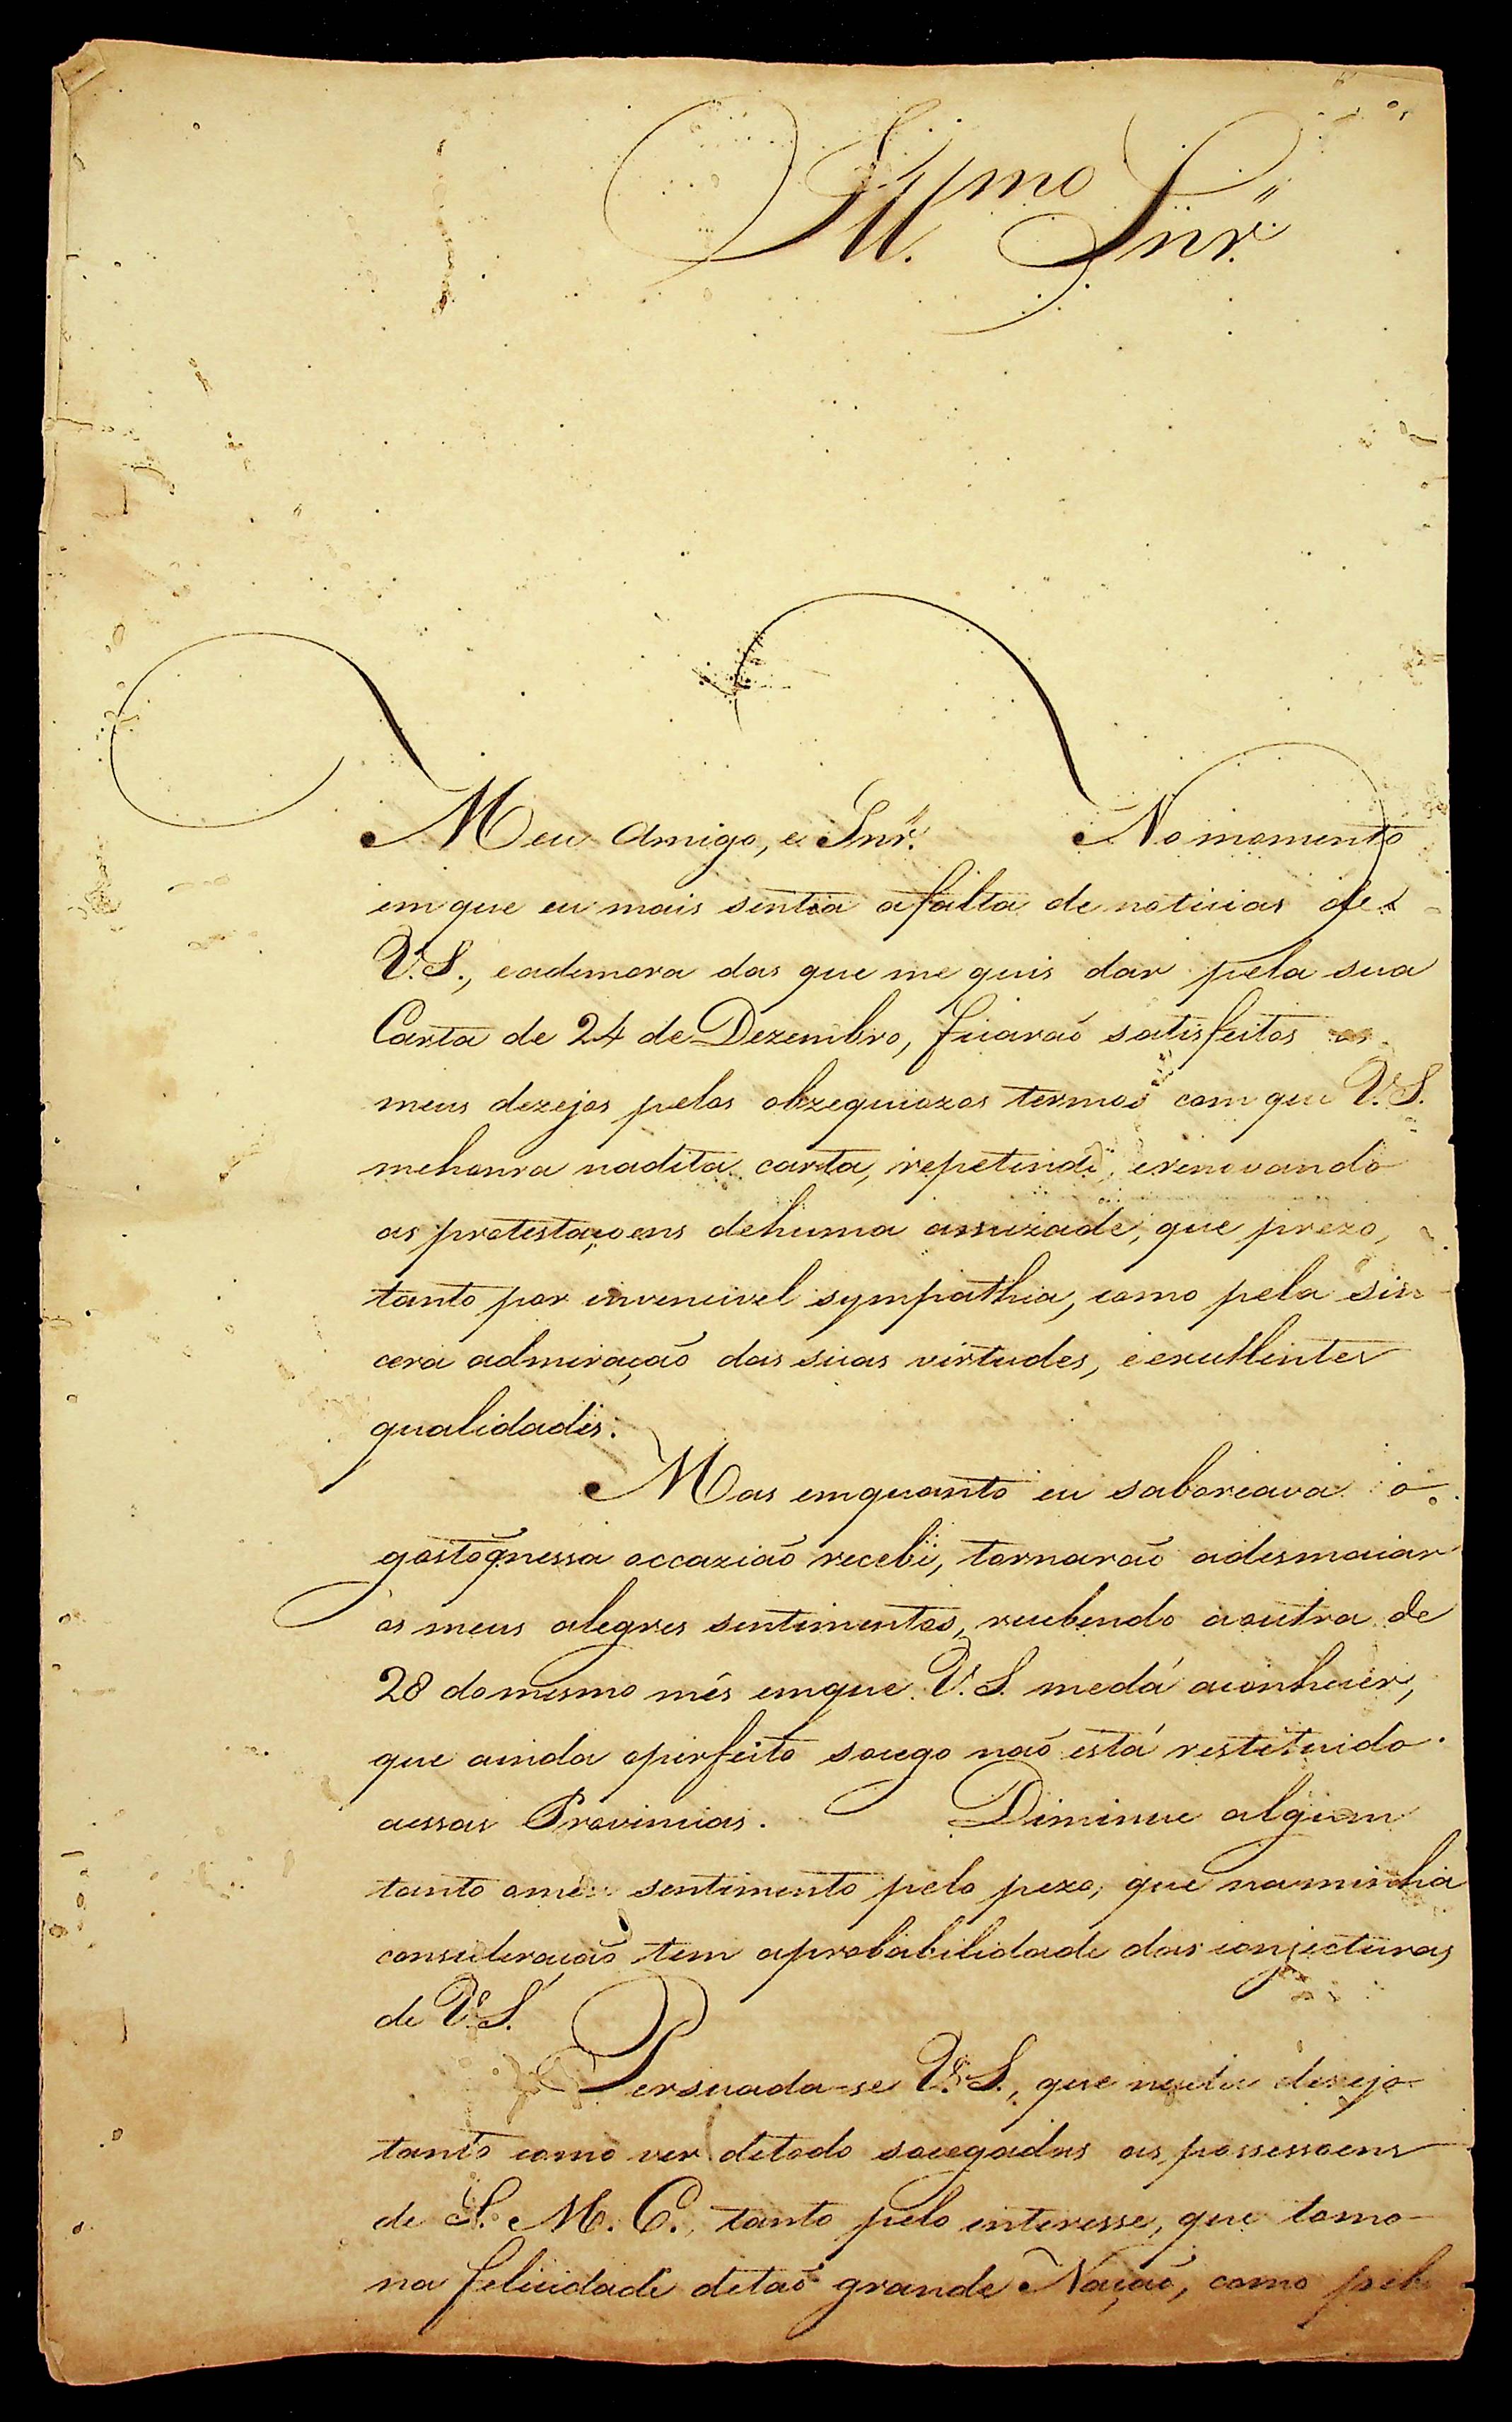 Ill.mo Snr.
Meu Amigo, e Snr. No momento
em que eu mais sentia afalta de noticias de
V.S., eademora das que me quis dar pela sua
Carta de 24 de Dezembro, ficaraõ satisfeitos os
meus dezejos pelos obzequiozos termos com que V.S.
mehonra nadita carta, repetindo, erenovando
as protestaçoens dehuma amizade, que prezo,
tanto por invencivel sympathia, como pela sin
cera admiraçaõ das suas virtudes, eexcellentes
qualidades.
Mas emquanto eu saboreava o
gosto q̃ nessa occaziaõ recebi, tornaraõ adesmaiar
os meus alegres sentimentos, recebendo aoutra de
28 domesmo mês emque V.S. medá aconhecer,
que ainda operfeito socego naõ está restituido
aessas Provincias. Diminue algum
tanto omeu sentimento pelo pezo, que naminha
consideraçaõ tem aprobabilidade das conjecturas
de V.S.
Persuada-se V.S., que nada dezejo
tanto como ver detodo socegadas as possessoens
de S. M. C., tanto pelo interesse, que tomo
na felicidade detaõ grande Naçaõ, como pelo